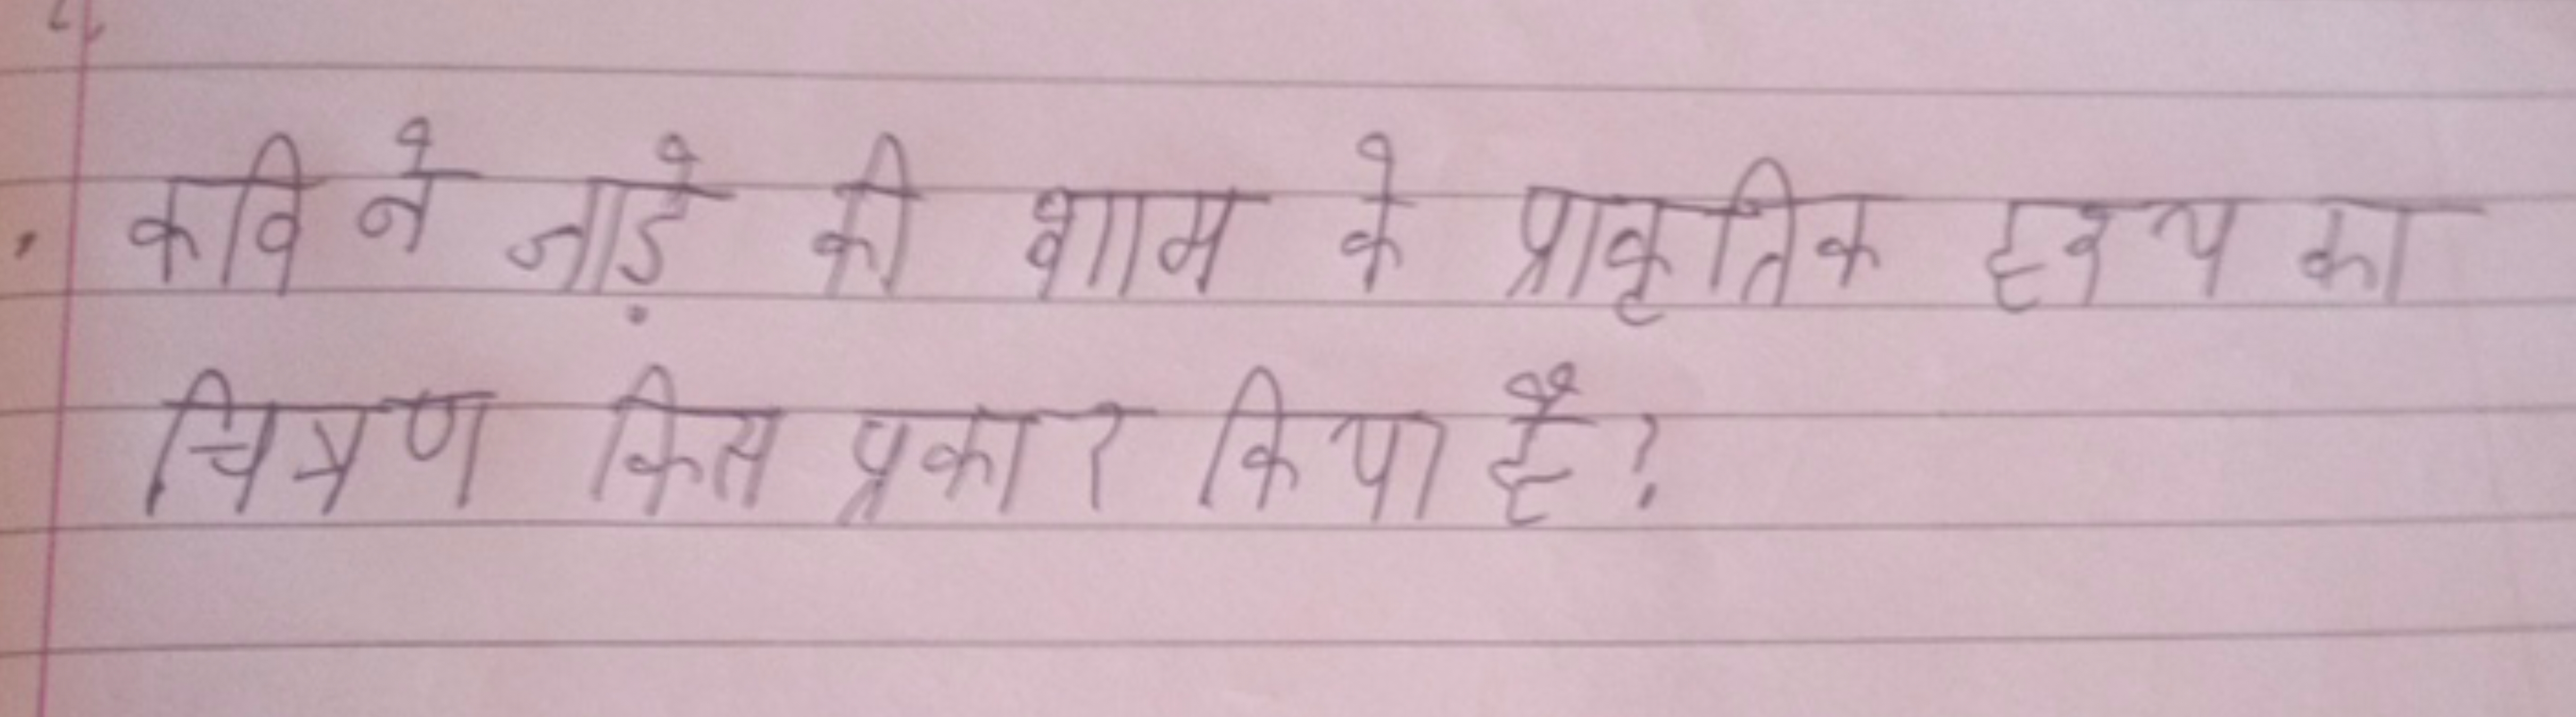 कवि ने जाड़े की शाम के प्राकृतिक दृश्य का
चित्रण किस प्रकार किया है?